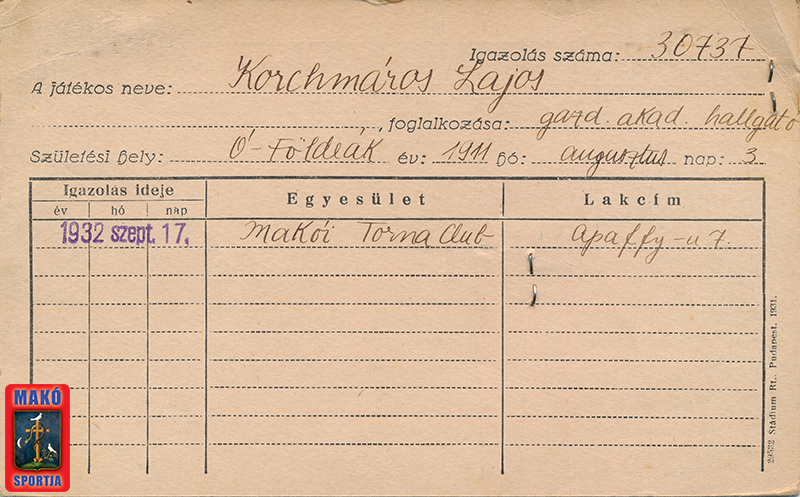 Igazolás száma: 30737
A játékos neve: Korchmáros Lajos
, foglalkozása: gazd. akad. hallgató
Születési hely: Ó-Földeák év: 1911 hó: augusztus nap: 3
Igazolás ideje
év hó nap
Egyesület
Lakcím
1932 szept. 17. Makói Torna Club Apaffy-u 7.
29532 Stádium Rt., Budapest, 1931.
MAKÓ
SPORTJA